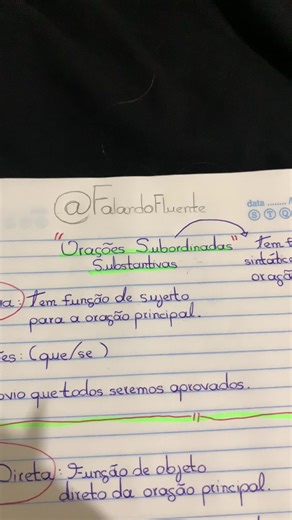 @FalandoFluente
data
S T Q
"Orações Subordinadas" Tem f
Substantivas sintátic
oraçã
va: Tem função de sujeito
para a oração principal.
es: (que/se)
óvio que todos seremos aprovados.
Direta: Função de objeto
direto da oração principal.